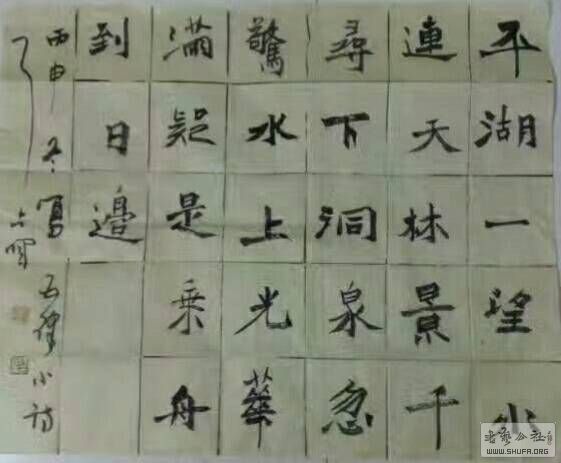 平湖一望
連天林景千
尋下洞泉忽
驚水上光華
滿疑是乘舟
到日邊
丙申冬寫五律小詩
书艺公社
WWW.SHUFA.ORG